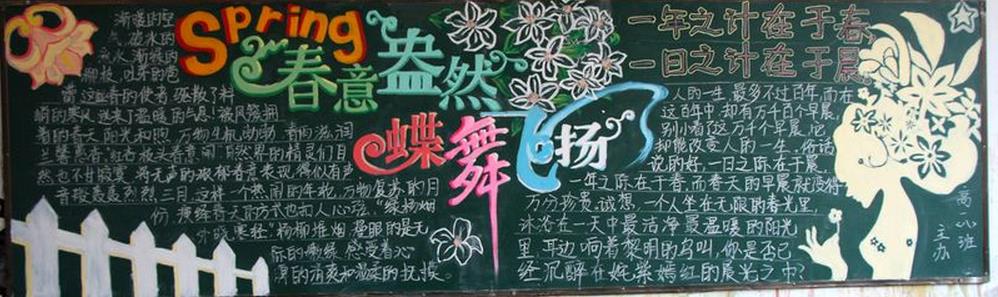 Spring
春意盎然
蝶舞飞扬
渐暖的空
气,破冰的
流水,渐绿的
柳枝,吐芽的花
蕾,这些春的使者驱散了料
峭的寒风,送来了温暖的气息!被风簇拥
着的春天,阳光和煦,万物生机勃勃,春雨滋润
兰馨蕙香,红杏枝头春意闹,自然界的精灵们自
然也不甘寂寞,将无声的浓郁春意表现得似有声
音般轰轰烈烈。三月,这样一个热闹的年轮,万物复苏的月
份,演绎春天的方式也扣人心弦。"绿杨烟
外晓寒轻"杨柳堆烟,湿眼的是无
际的嫩绿,感受着沁
脾的清爽和温柔的抚摸。
一年之计在于春,
一日之计在于晨
人的一生最多不过百年,而在
这百年中,却有万千百个早晨,
别小看了这万千个早晨,它
却能改变人的一生。俗话
说的好,一日之际在于晨,
一年之际在于春,而春天的早晨就显得
万分珍贵,试想,一个人坐在无限的春光里,
沐浴在一天中最洁净最温暖的阳光
里,耳边响着黎明的鸟叫,你是否已
经沉醉在姹紫嫣红的晨光之中?
高一
班
主办